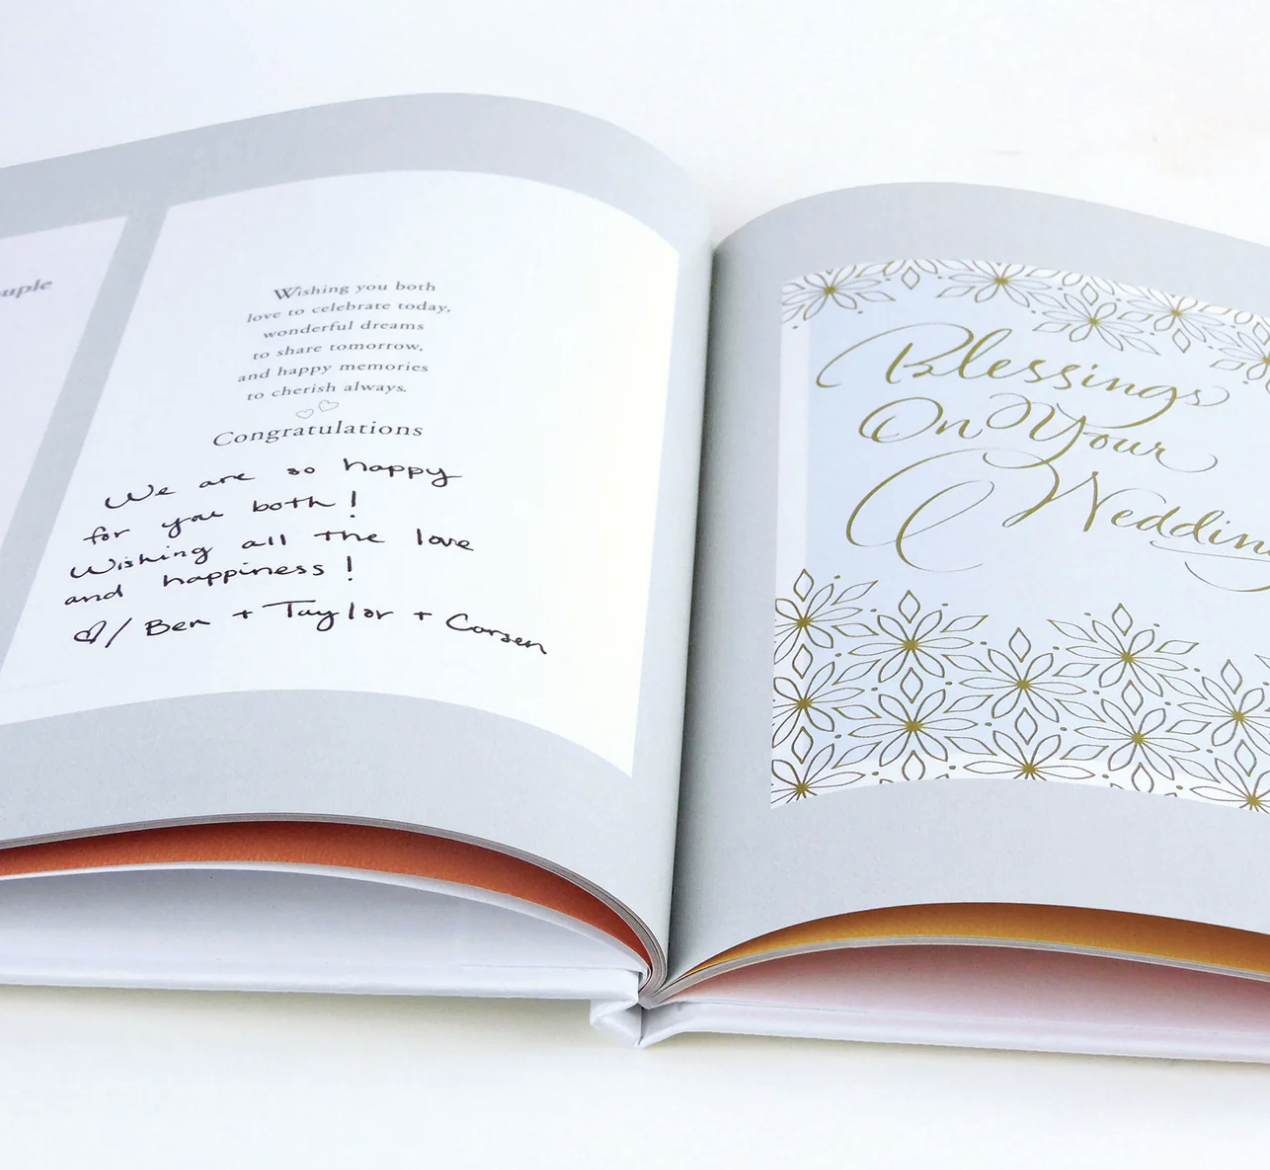 Wishing you both
love to celebrate today,
wonderful dreams
to share tomorrow,
and happy memories
to cherish always.
Congratulations
We are so happy
for you both!
Wishing all the love
and happiness!
♡/ Ben + Taylor + Carsen
Blessings
On Your